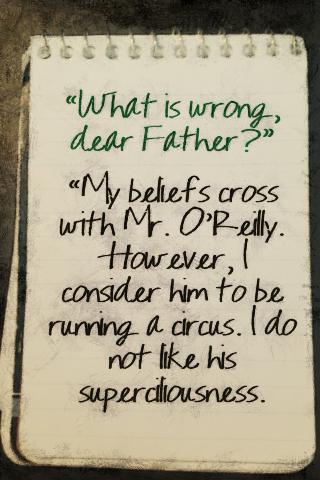 “What is wrong,
dear Father?”
“My beliefs cross
with Mr. O'Reilly.
However, I
consider him to be
running a circus. I do
not like his
superciliousness.